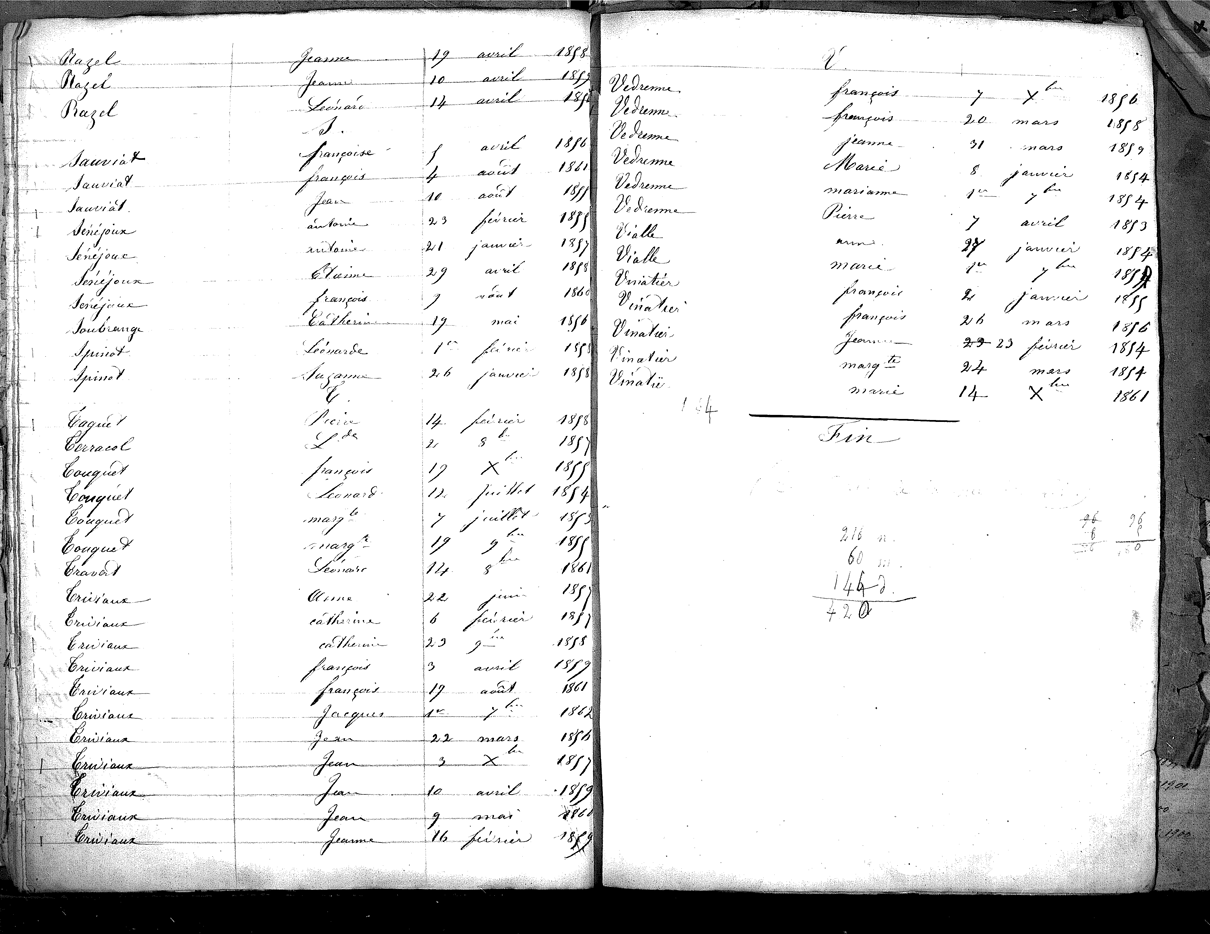 Razel Jeanne 19 avril 1858
Razel Jeanne 10 avril 1859
Razel Léonard 14 avril
S.
Sauviat françoise 5 avril 1856
Sauviat françois 4 août 1861
Sauviat Jean 10 août 1855
Sénéjoux antoine 23 février 1855
Sénéjoux antoine 21 janvier 1857
Sénéjoux Etienne 29 avril 1858
Sénéjoux françois 9 août 1860
Soubrange Catherine 19 mai 1856
Spinot Léonarde 1er février
Spinot Suzanne 26 janvier 1858
T.
Taquet Pierre 14 février 1858
Terracol Lde 2 8bre 1857
Touquet françois 19 Xbre 1855
Touquet Léonard 12 juillet 1854
Touquet margte 7 juillet 1853
Touquet margte 19 9bre 1855
Travert Léonard 14 8bre 1861
Triviaux Anne 22 juin 1857
Triviaux catherine 6 février 1857
Triviaux catherine 23 9bre 1858
Triviaux françois 3 avril 1859
Triviaux françois 19 août 1861
Triviaux Jacques 1er 7bre 1862
Triviaux Jean 22 mars 1856
Triviaux Jean 3 Xbre 1857
Triviaux Jean 10 avril 1859
Triviaux Jean 9 mai 1860
Triviaux Jeanne 16 février 1859
V.
Vedrenne françois 7 Xbre 1856
Vedrenne françois 20 mars 1858
Vedrenne jeanne 31 mars 1859
Vedrenne Marie 8 janvier 1854
Vedrenne marianne 1er 7bre 1854
Vedrenne Pierre 7 avril 1853
Vialle ann. 27 janvier 1854
Vialle marie 1er 7bre
Vinatier françois 2 janvier 1855
Vinatier françois 26 mars 1856
Vinatier Jeanne 23 23 février 1854
Vinatier margte 24 mars 1854
Vinatier marie 14 Xbre 1861
144
Fin
216 n.
60 m.
144 d.
420
96 96